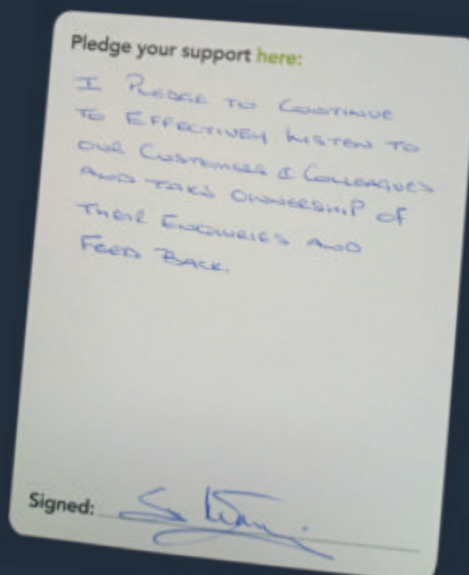 Pledge your support here:
I PLEDGE TO CONTINUE
TO EFFECTIVELY LISTEN TO
OUR CUSTOMERS & COLLEAGUES
AND TAKE OWNERSHIP OF
THEIR ENQUIRIES AND
FEED BACK.
Signed: